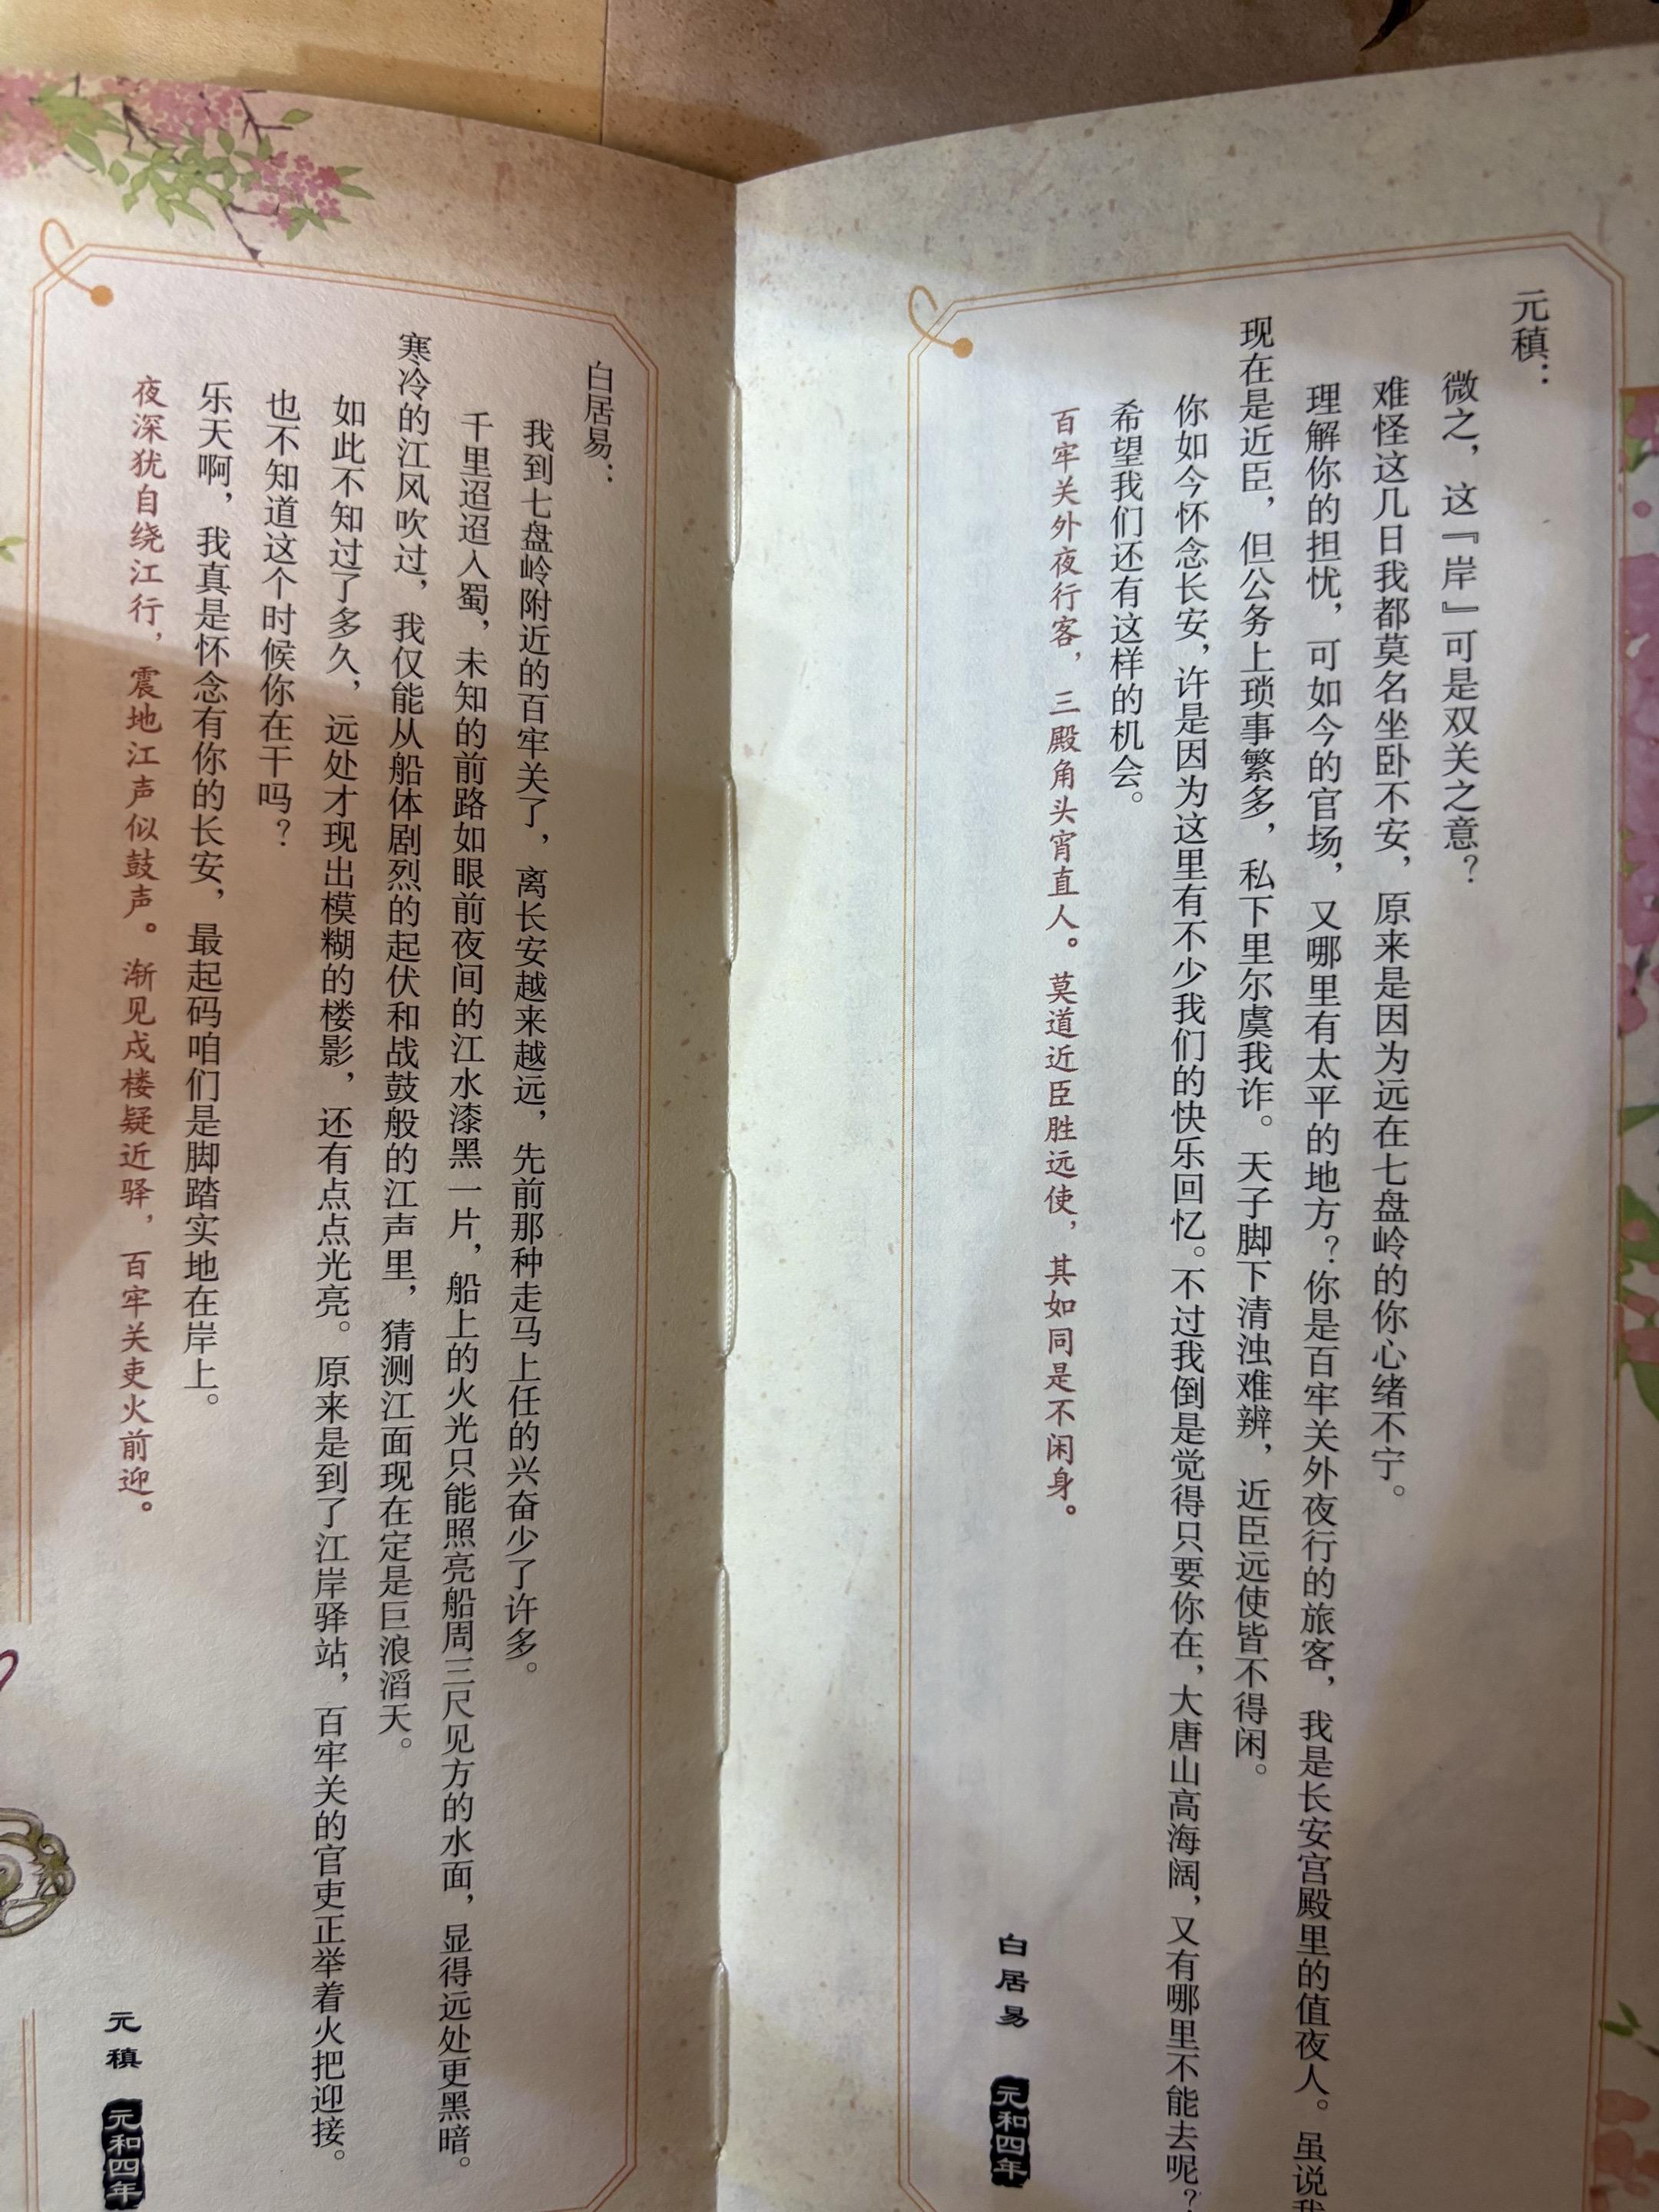 元稹：
微之，这『岸』可是双关之意？
难怪这几日我都莫名坐卧不安，原来是因为远在七盘岭的你心绪不宁。
理解你的担忧，可如今的官场，又哪里有太平的地方？你是百牢关外夜行的旅客，我是长安宫殿里的值夜人。虽说我
现在是近臣，但公务上琐事繁多，私下里尔虞我诈。天子脚下清浊难辨，近臣远使皆不得闲。
你如今怀念长安，许是因为这里有不少我们的快乐回忆。不过我倒是觉得只要你在，大唐山高海阔，又有哪里不能去呢？
希望我们还有这样的机会。
百牢关外夜行客，三殿角头宵直人。莫道近臣胜远使，其如同是不闲身。
白居易 元和四年
白居易：
我到七盘岭附近的百牢关了，离长安越来越远，先前那种走马上任的兴奋少了许多。
千里迢迢入蜀，未知的前路如眼前夜间的江水漆黑一片，船上的火光只能照亮船周三尺见方的水面，显得远处更黑暗。
寒冷的江风吹过，我仅能从船体剧烈的起伏和战鼓般的江声里，猜测江面现在定是巨浪滔天。
如此不知过了多久，远处才现出模糊的楼影，还有点点光亮。原来是到了江岸驿站，百牢关的官吏正举着火把迎接。
也不知道这个时候你在干吗？
乐天啊，我真是怀念有你的长安，最起码咱们是脚踏实地在岸上。
夜深犹自绕江行，震地江声似鼓声。渐见戍楼疑近驿，百牢关吏火前迎。
元稹 元和四年